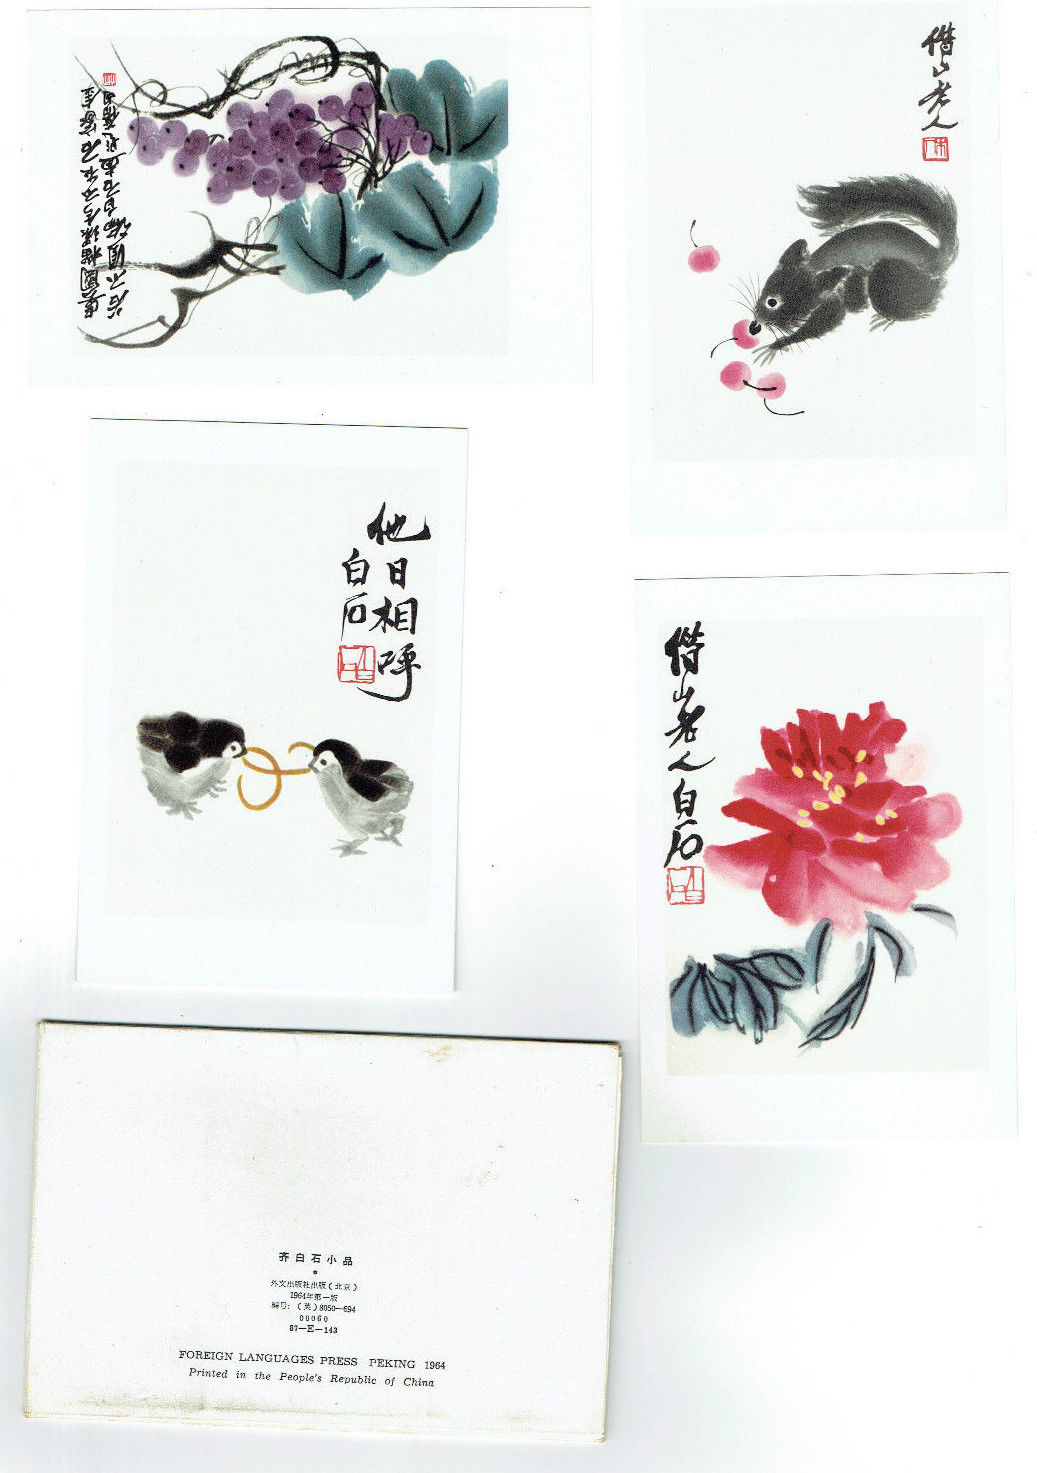 借山老人
他日相呼
白石
借山老人白石
齐白石小品
*
外文出版社出版（北京）
1964年第一版
编号：（英）8050—694
00060
87—E—143
FOREIGN LANGUAGES PRESS PEKING 1964
Printed in the People's Republic of China